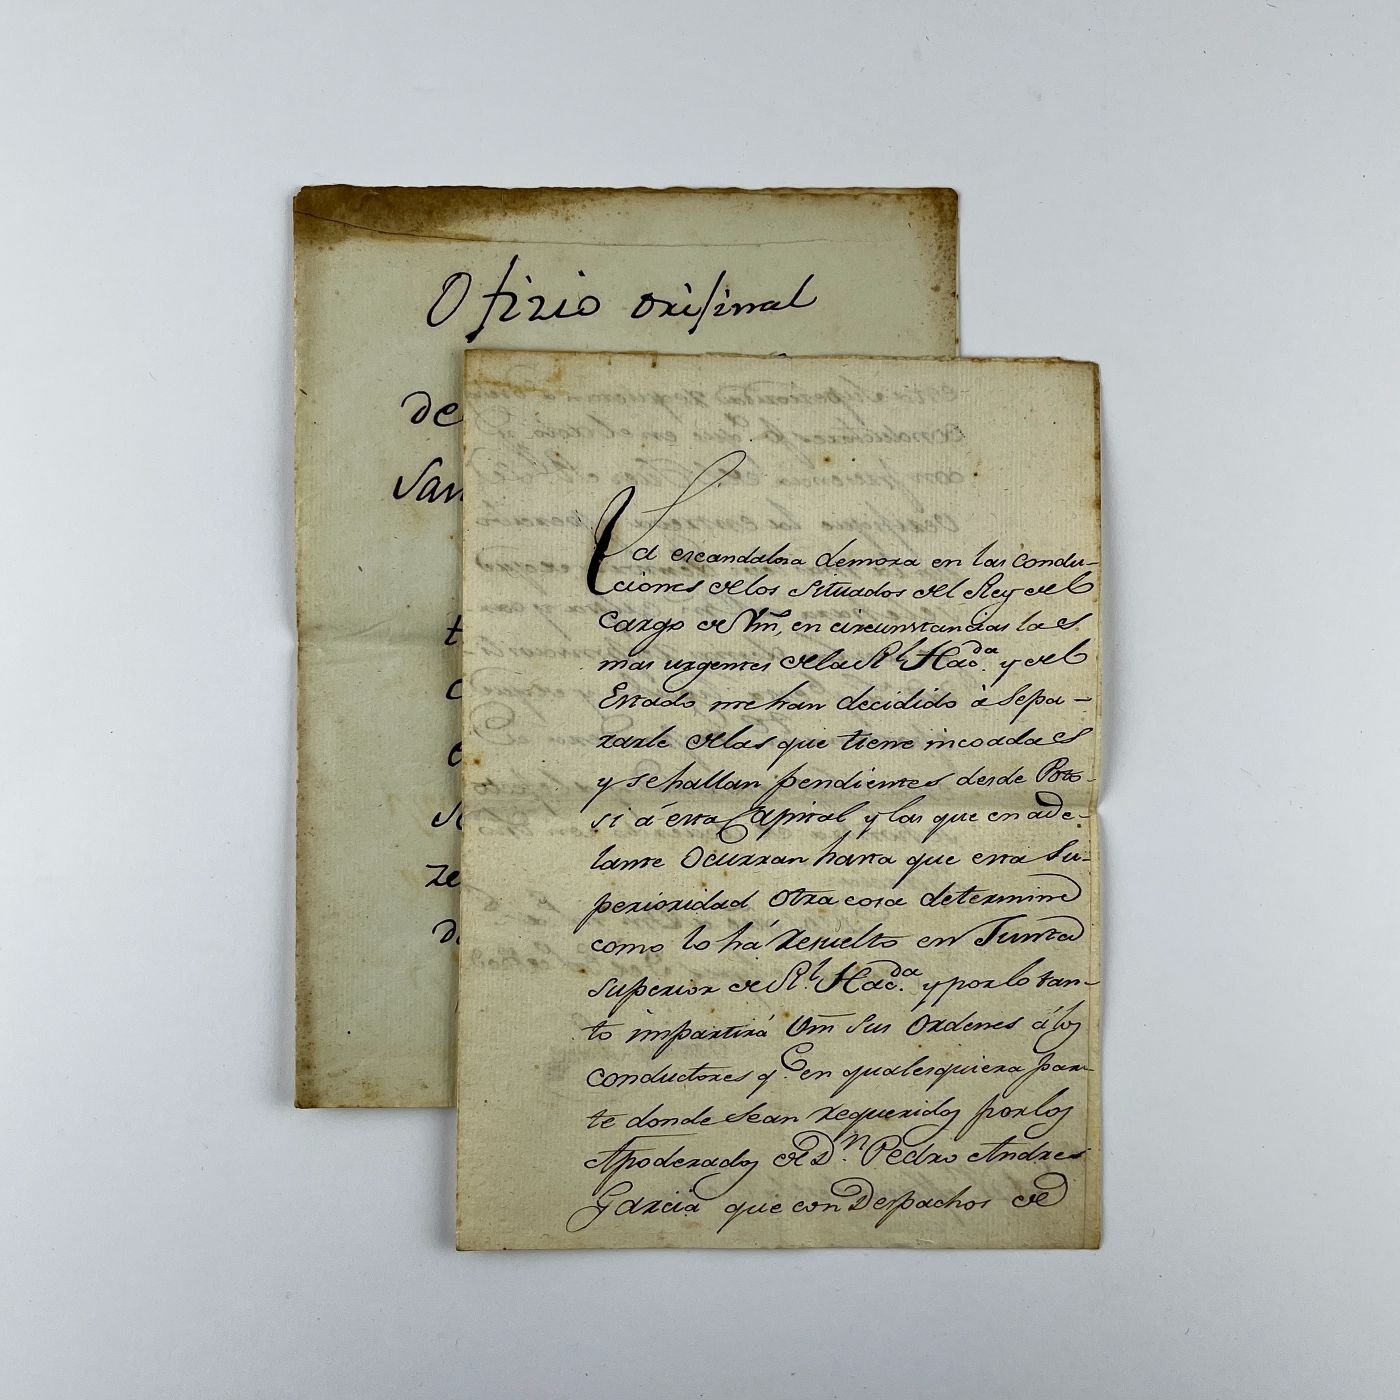 Ofizio original
de
San
La escandalosa demora en las condu-
ciones de los Situados del Rey del
Cargo de Vm, en circunstancias las
mas urgentes de la Rl. Hacda. y del
Estado me han decidido à sepa-
rarle de las que tiene incoadas
y se hallan pendientes desde Poto-
si á esta Capital y las que en ade-
lante Ocurran hasta que esta Su-
perioridad Otra cosa determine
como lo há resuelto en Junta
Superior de Rl. Hacda. y por lo tan-
to impartirá Vm sus Ordenes á los
conductores qe. en qualesquiera par-
te donde sean requeridos por los
Apoderados de Dn. Pedro Andres
Garcia que con Despachos de